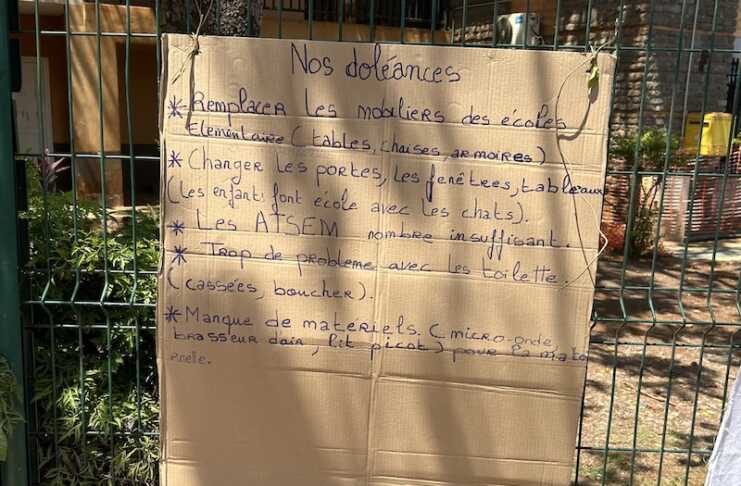 Nos doléances
* Remplacer les mobiliers des écoles
Elementaire (tables, chaises, armoires)
* Changer les portes, les fenêtees, tableaux
(les enfants font école avec les chats).
* Les ATSEM nombre insuffisant.
* Trop de probleme avec les toilette.
(cassées, boucher).
* Manque de matériels. (micro-onde,
brasseur d'air, lit picot) pour la mate
rnelle.